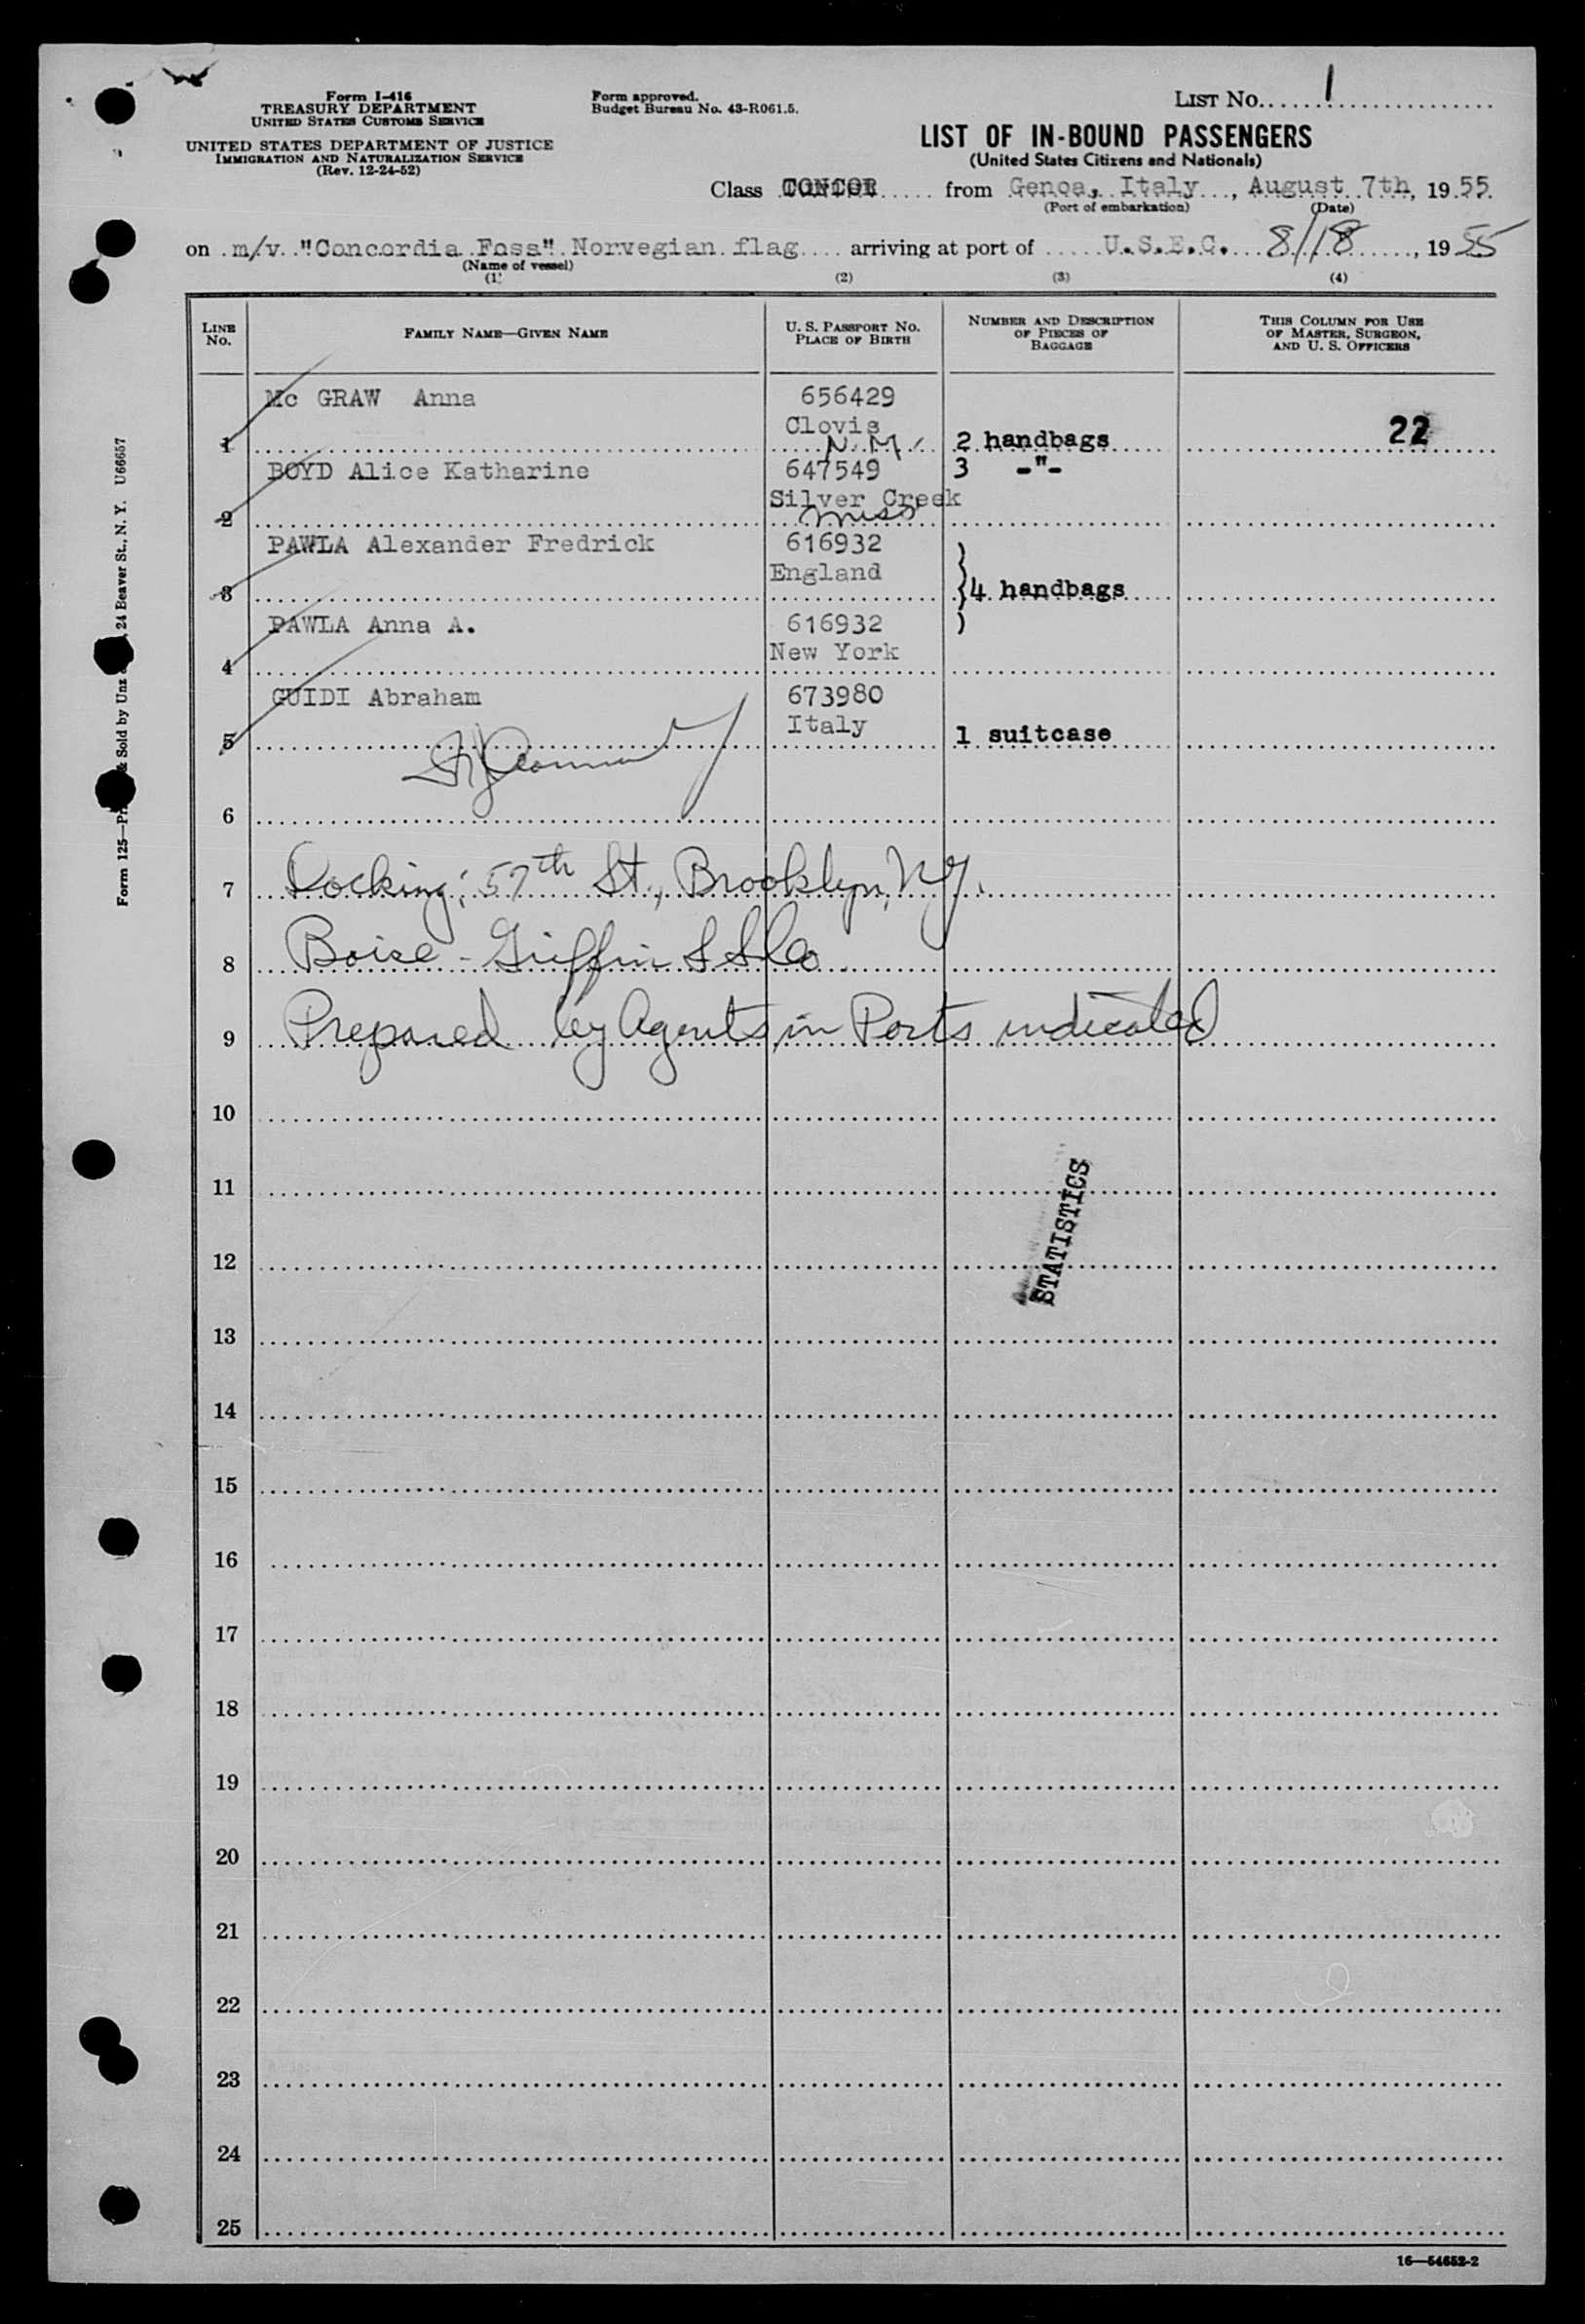 Form I-416
TREASURY DEPARTMENT
UNITED STATES CUSTOMS SERVICE
UNITED STATES DEPARTMENT OF JUSTICE
IMMIGRATION AND NATURALIZATION SERVICE
(Rev. 12-24-52)
Form approved.
Budget Bureau No. 43-R061.5.
LIST NO. 1
LIST OF IN-BOUND PASSENGERS
(United States Citizens and Nationals)
Class from Genoa, Italy, August 7th, 1955
(Port of embarkation) (Date)
on m/v. "Concordia Foss" Norwegian flag arriving at port of U.S.E.C. 8/18, 1955
(Name of vessel)
(1) (2) (3) (4)
LINE NO.
FAMILY NAME—GIVEN NAME
U. S. PASSPORT NO.
PLACE OF BIRTH
NUMBER AND DESCRIPTION
OF PIECES OF
BAGGAGE
THIS COLUMN FOR USE
OF MASTER, SURGEON,
AND U. S. OFFICERS
Mc GRAW Anna 656429
Clovis
1 N.M. 2 handbags 22
BOYD Alice Katharine 647549 3 -"-
Silver Creek
2 Miss
PAWLA Alexander Fredrick 616932
England
3 4 handbags
PAWLA Anna A. 616932
New York
4
GUIDI Abraham 673980
Italy
5 1 suitcase
6
7 Docking: 57th St., Brooklyn, N.Y.
8 Boise-Griffin S S Co
9 Prepared by Agents in Ports indicated
10
11
STATISTICS
12
13
14
15
16
17
18
19
20
21
22
23
24
25
16—54652-2
Form 125— Sold by Unz 24 Beaver St., N. Y. U66657